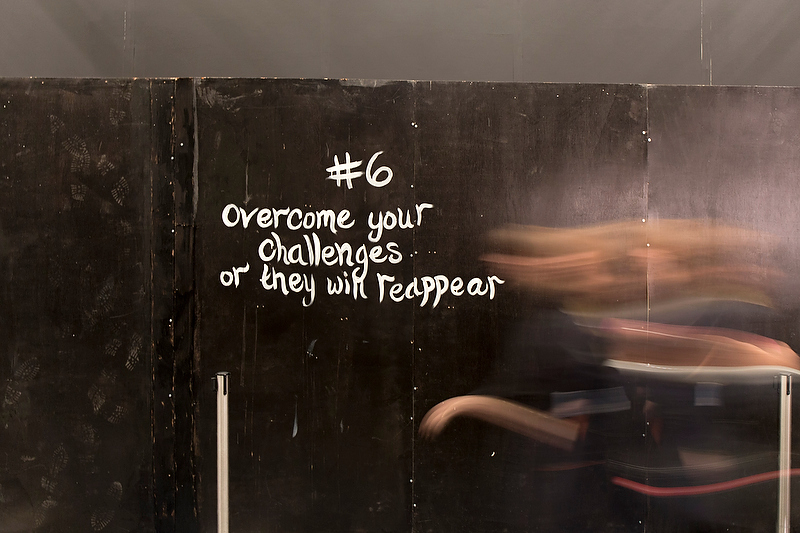 #6
overcome your
challenges
or they will reappear